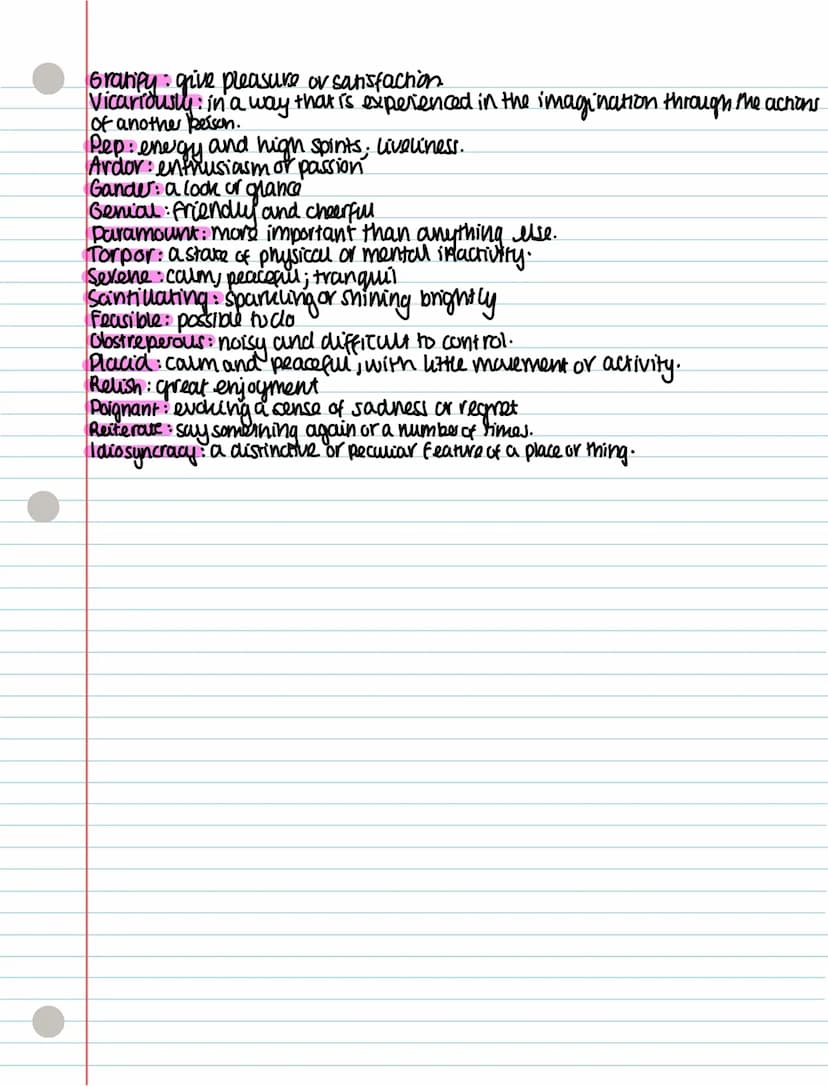 Gratify: give pleasure or satisfaction
Vicariously: in a way that is experienced in the imagination through the actions
of another person.
Pep: energy and high spirits; liveliness.
Ardor: enthusiasm or passion
Gander: a look or glance
Genial: friendly and cheerful
Paramount: more important than anything else.
Torpor: a state of physical or mental inactivity.
Serene: calm, peaceful; tranquil
Scintillating: sparkling or shining brightly
Feasible: possible to do
Obstreperous: noisy and difficult to control.
Placid: calm and peaceful, with little movement or activity.
Relish: great enjoyment
Poignant: evoking a sense of sadness or regret
Reiterate: say something again or a number of times.
Idiosyncracy: a distinctive or peculiar feature of a place or thing.